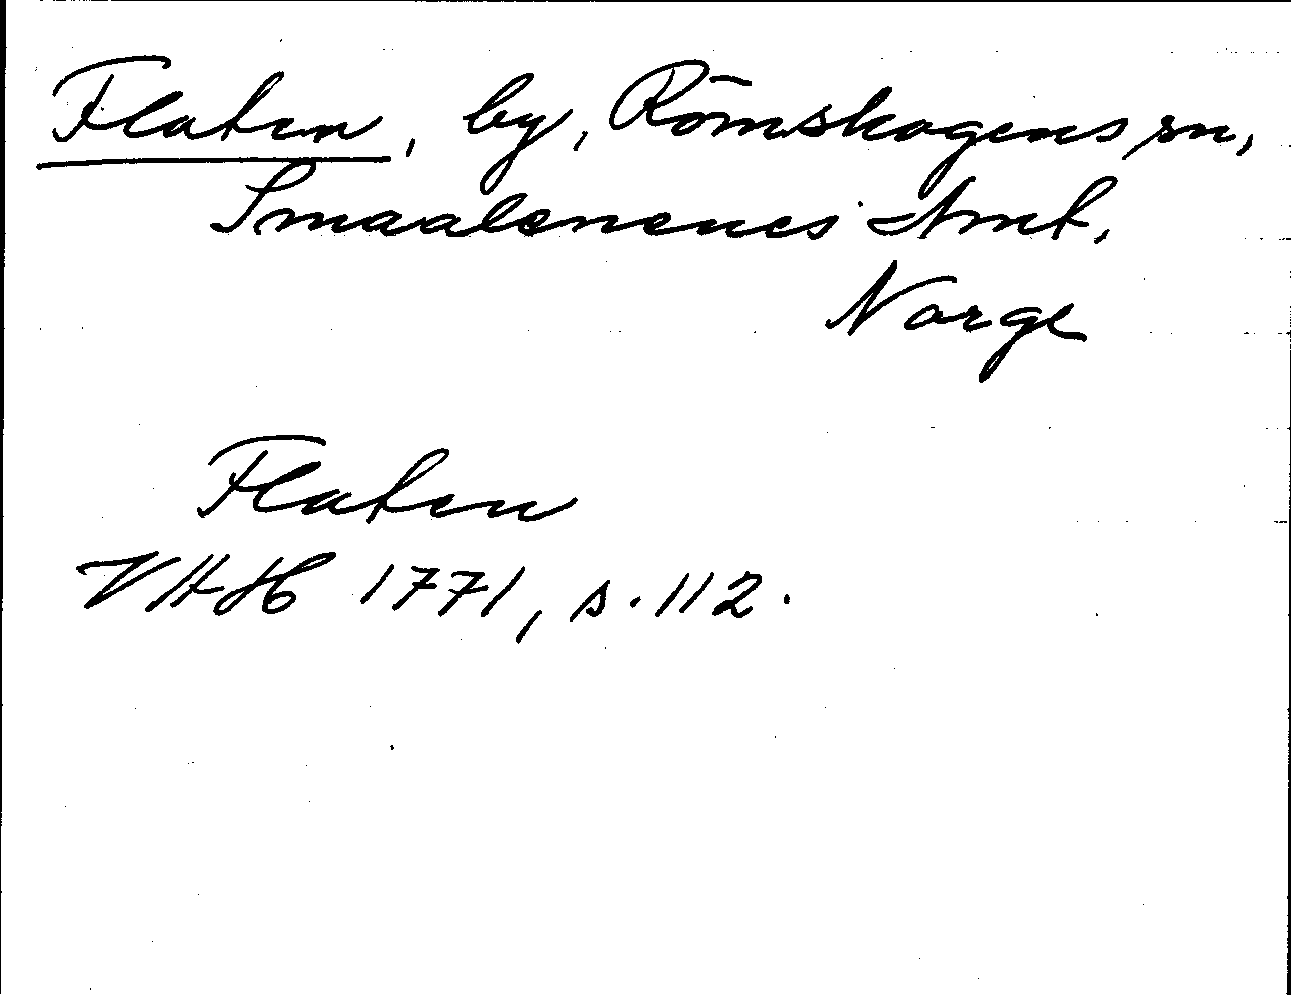 Flaten, by, Römskogens sn,
Smaalenenes Amt,
Norge
Flaten
VHAH 1771, s. 112.